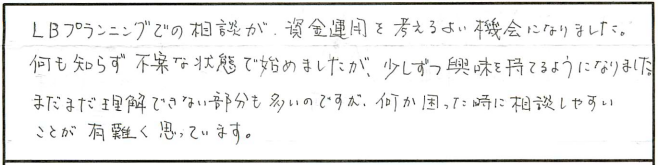 LBプランニングでの相談が、資金運用を考えるよい機会になりました。
何も知らず不案な状態で始めましたが、少しずつ興味を持てるようになりました。
まだまだ理解できない部分も多いのですが、何か困った時に相談しやすい
ことが有難く思っています。